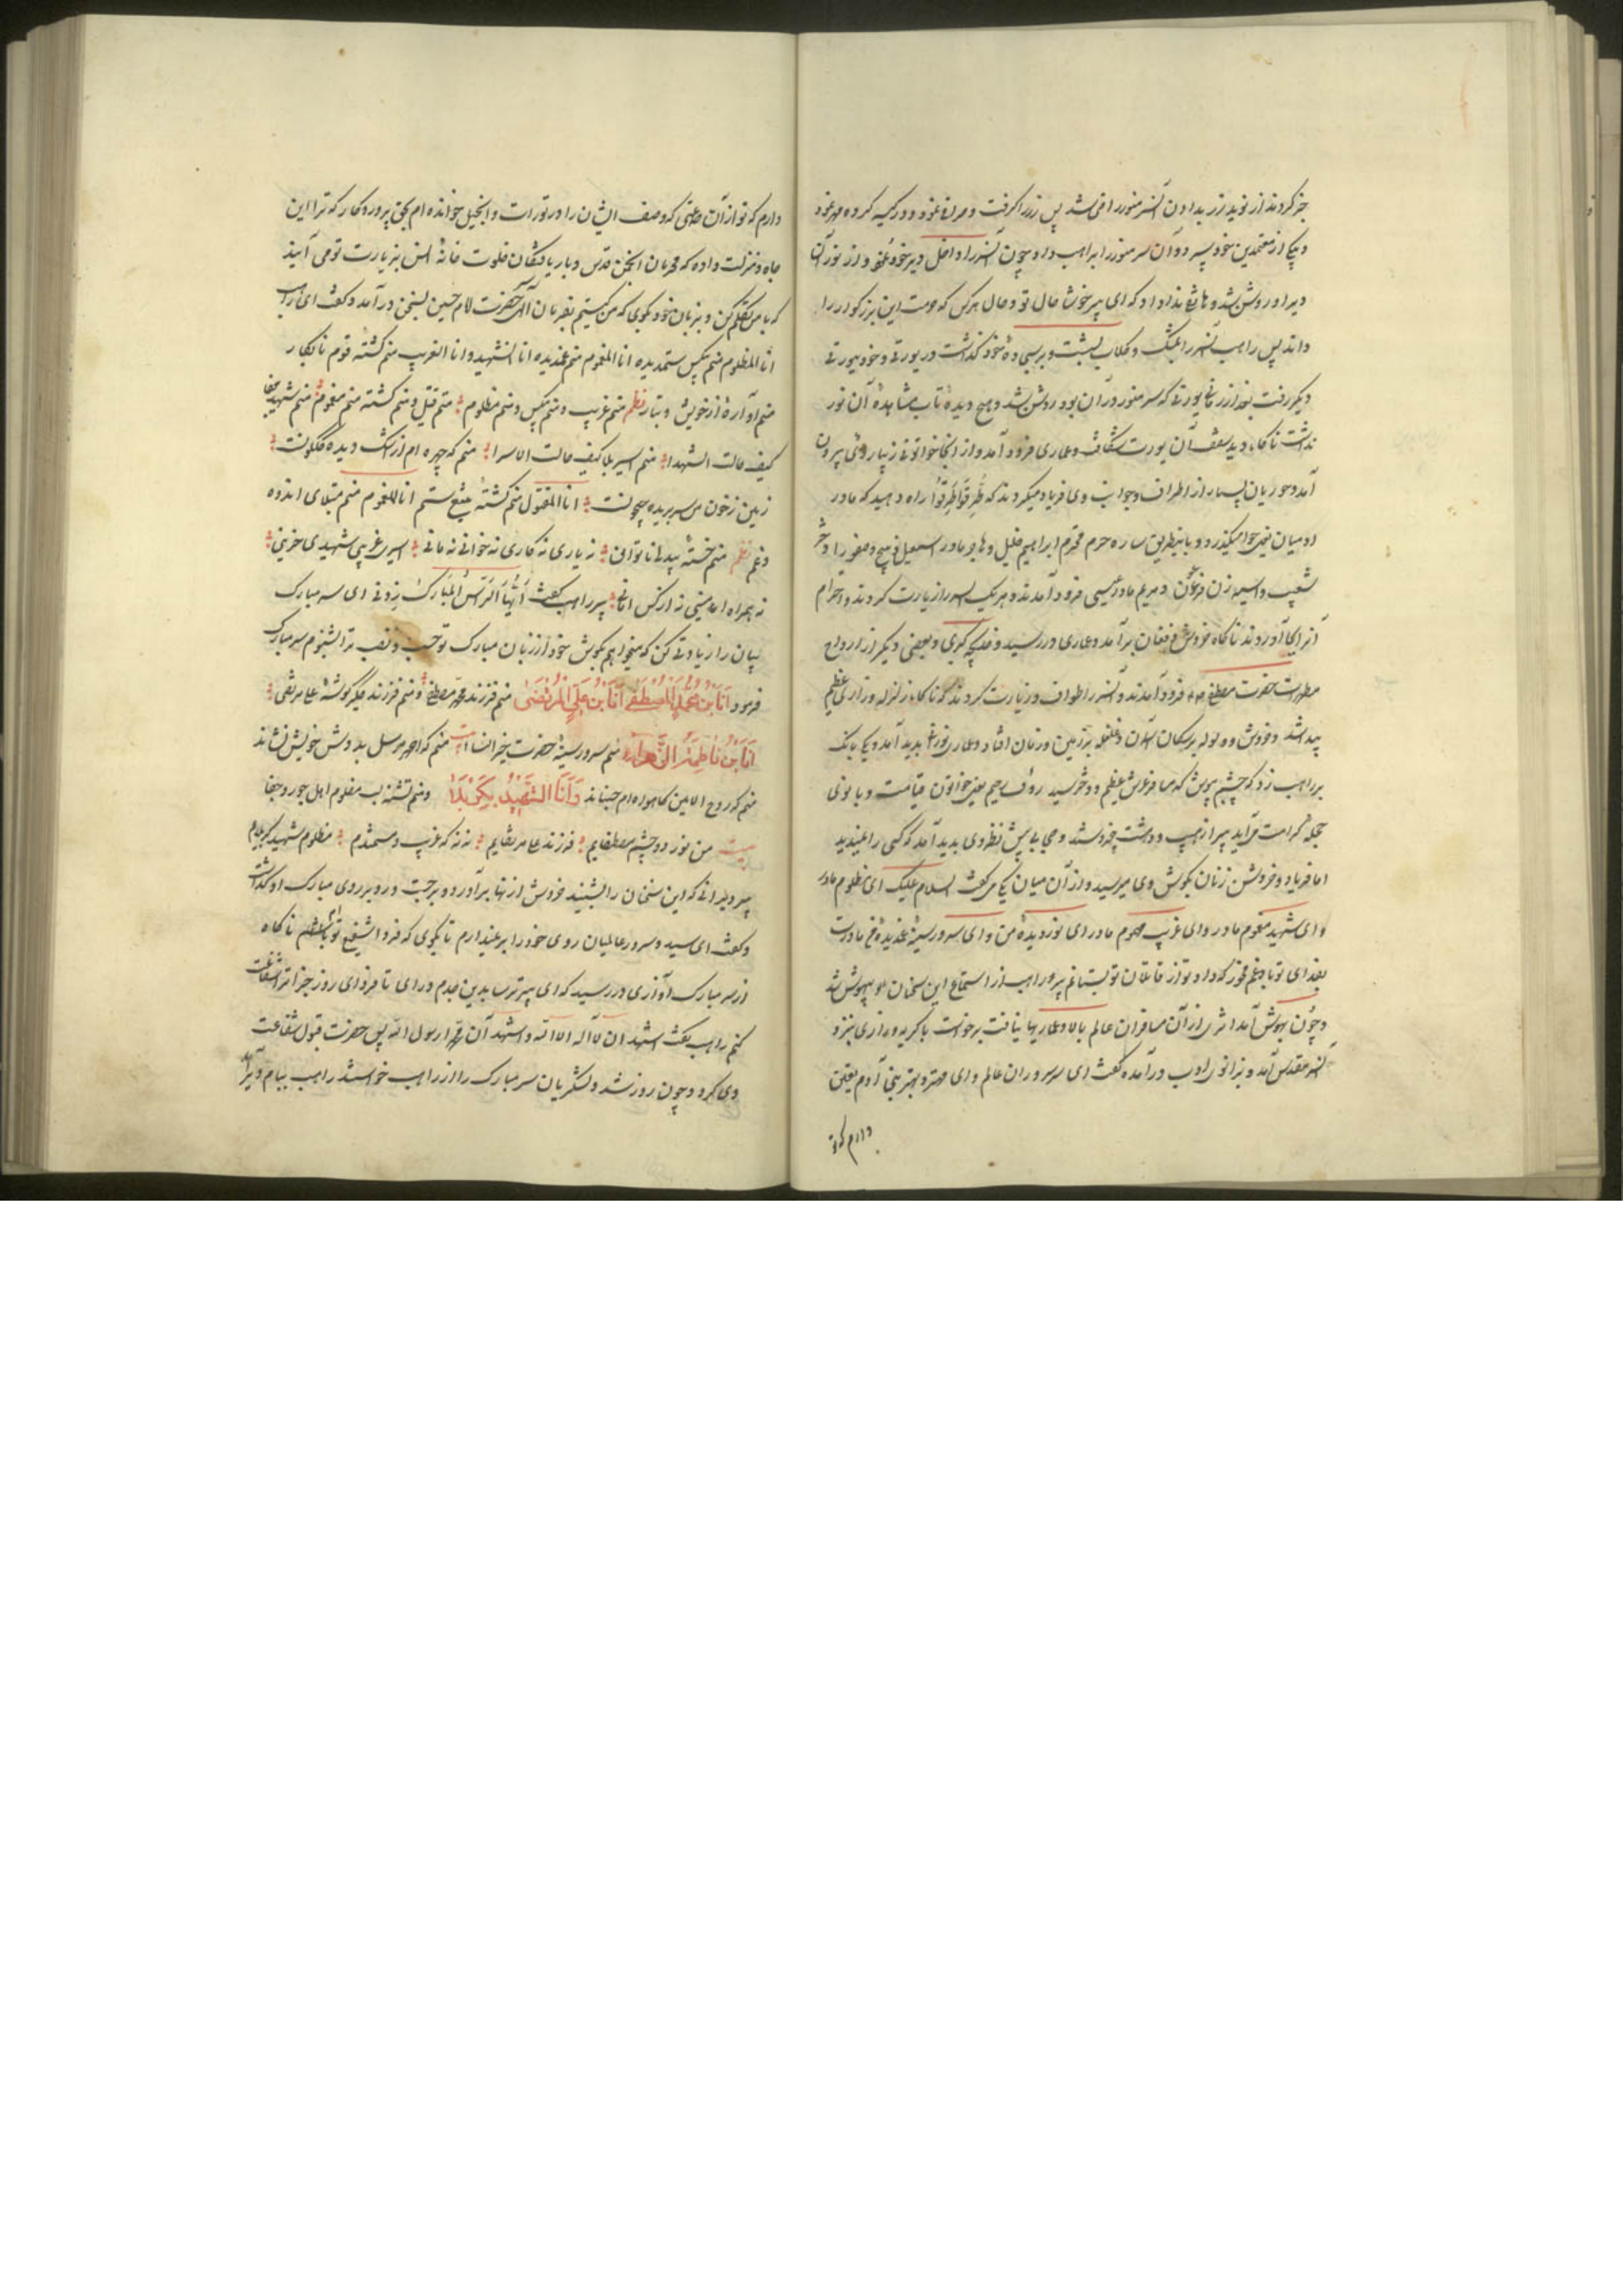 خبر کردند از نوید زر بدادن آنسر منور راضی شد پس زر را گرفت و مهر نمود و در کیسه کرده مهر نمود
و بیکی از معتمدین خود سپرد و آن سر منور را براهب داد و چون آنسر را داخل دیر خود نمود از نور آن
دیر او روشن شد و هاتفی ندا داد که ای پیر خوشا حال تو و حال هرکس که حرمت این بزرگوار را
داند پس راهب آنسر را بمشک و گلاب بشست و بر سجاده خود گذاشت در یورتی و خود بیورتی
دیگر رفت بعد از زمانی یورتی که سر منور در آن بود روشن شد و هیچ دیده تاب مشاهده آن نور
نداشت ناگاه دید سقف آن یورت شکافت و عماری فرود آمد و از آنجا خواتونی زیبا روی بیرون
آمد و حوریان بسیار از اطراف و جوانب وی فریاد میکردند که طرقوا طرقوا راه دهید که مادر
آدمیان یعنی حوا میگذرد و باینطریق ساره حرم محترم ابراهیم خلیل و هاجر مادر اسمعیل ذبیح و صفورا دختر
شعیب و آسیه زن فرعون و مریم مادر عیسی فرود آمدند و هر یک آنسر را زیارت کردند و احترام
آنرا بجا آوردند ناگاه خروش و فغان برآمد و عماری در رسید و خدیجه کبری و بعضی دیگر از ازواج
مطهرات حضرت مصطفی فرود آمدند و آنسر را طواف و زیارت کردند که ناگاه زلزله و زاری عظیم
پیدا شد و خروش و ولوله بر سکان آسمان و غلغله بر زمین و زمان افتاد و عماری نورانی پدید آمد و یکی بانگ
بر راهب زد که چشم بپوش که مسافر عرش عظیم و دختر سید رؤف رحیم یعنی خواتون قیامت و بانوی
حجله کرامت میآید پیر از هیبت و دهشت بیخود شد و حجابی پیش نظر وی پدید آمد که کسی را نمیدید
اما فریاد و خروش زنان بگوش وی میرسید و از آن میان یکی میگفت السلام علیک ای مظلوم مادر
و ای شهید مغموم مادر و ای غریب مهموم مادر ای نور دیده من و ای سرور سینه غمدیده من مادرت
بفدای تو باد غم مخور که داد تو از قاتلان تو بستانم پیر راهب از استماع این سخنان بیهوش شد
و چون بهوش آمد اثری از آن مسافران عالم بالا و عماریها نیافت برخواست با گریه و زاری بنزد
آنسر مقدس آمد و بزانوی ادب درآمده گفت ای سر سروران عالم و ای مهتر و بهتر بنی آدم یقین
دارم که تو
دارم که تو از آن جماعتی که وصف ایشان را در تورات و انجیل خوانده ام بحق پروردگار که ترا این
جاه و منزلت داده که محرمان انجمن قدس و باریافتگان خلوت خانه انس بزیارت تو می آیند
که با من تکلم کن و بزبان خود بگوی که من کیستم بفرمان الهی آنحضرت امام حسین بسخن درآمد و گفت ای راهب
انا المظلوم منم بیکس ستمدیده انا المغموم منم غمدیده انا الشهید و انا الغریب منم کشته قوم نابکار
منم آواره از خویش و تبار نظم منم غریب و منم بیکس و منم مظلوم منم قتیل و منم کشته منم مغموم منم شهید جفا
کیف حالت الشهدا منم اسیر بلا کیف حالت الاسرا منم که چهره ام از اشک دیده گلگونست
زمین ز خون من سر بریده جیحونست انا المقتول منم کشته بتیغ ستم انا المغموم منم مبتلای اندوه
و غم نظم منم خسته بیدلا ناتوانی نه یاری نه کاری نه خوانی نه مانی اسیر غریبی شهیدی حزینی
نه همراه امامینی نه از کس امانی پیر راهب گفت ایها الراس المبارک زدنی ای سر مبارک
بیان را زیادتی کن که میخواهم بگوش خود از زبان مبارک تو حسب و نسب ترا بشنوم سر مبارک
فرمود انا بن محمد المصطفی انا بن علی المرتضی منم فرزند محمد مصطفی و منم فرزند جگر گوشه علی مرتضی
انا بن فاطمة الزهراء منم سرور سینه حضرت خیر النسا بیت منم که احمد مرسل بدوش خویش نشاند
منم که روح الامین گاهواره ام جنباند و انا الشهید بکربلا و منم تشنه لب مظلوم اهل جور و جفا
بیت من نور دو چشم مصطفایم فرزند علی مرتضایم نه نه که غریب و مستمندم مظلوم شهید کربلایم
پیر دیرانی که این سخنان را بشنید خروش از نهاد برآورد و برجست و رو بر روی مبارک او گذاشت
و گفت ای سید و سرور عالمیان روی خود را بر نمیدارم تا بگوی که فردا شفیع تو باشم ناگاه
از سر مبارک آوازی در رسید که ای پیر ترسا بدین جدم درای تا فردای روز جزا ترا شفاعت
کنم راهب گفت اشهد ان لا اله الا الله و اشهد ان محمدا رسول الله پس حضرت قبول شفاعت
وی کرد و چون روز شد و لشکریان سر مبارک را از راهب خواستند راهب ببام دیر آمد